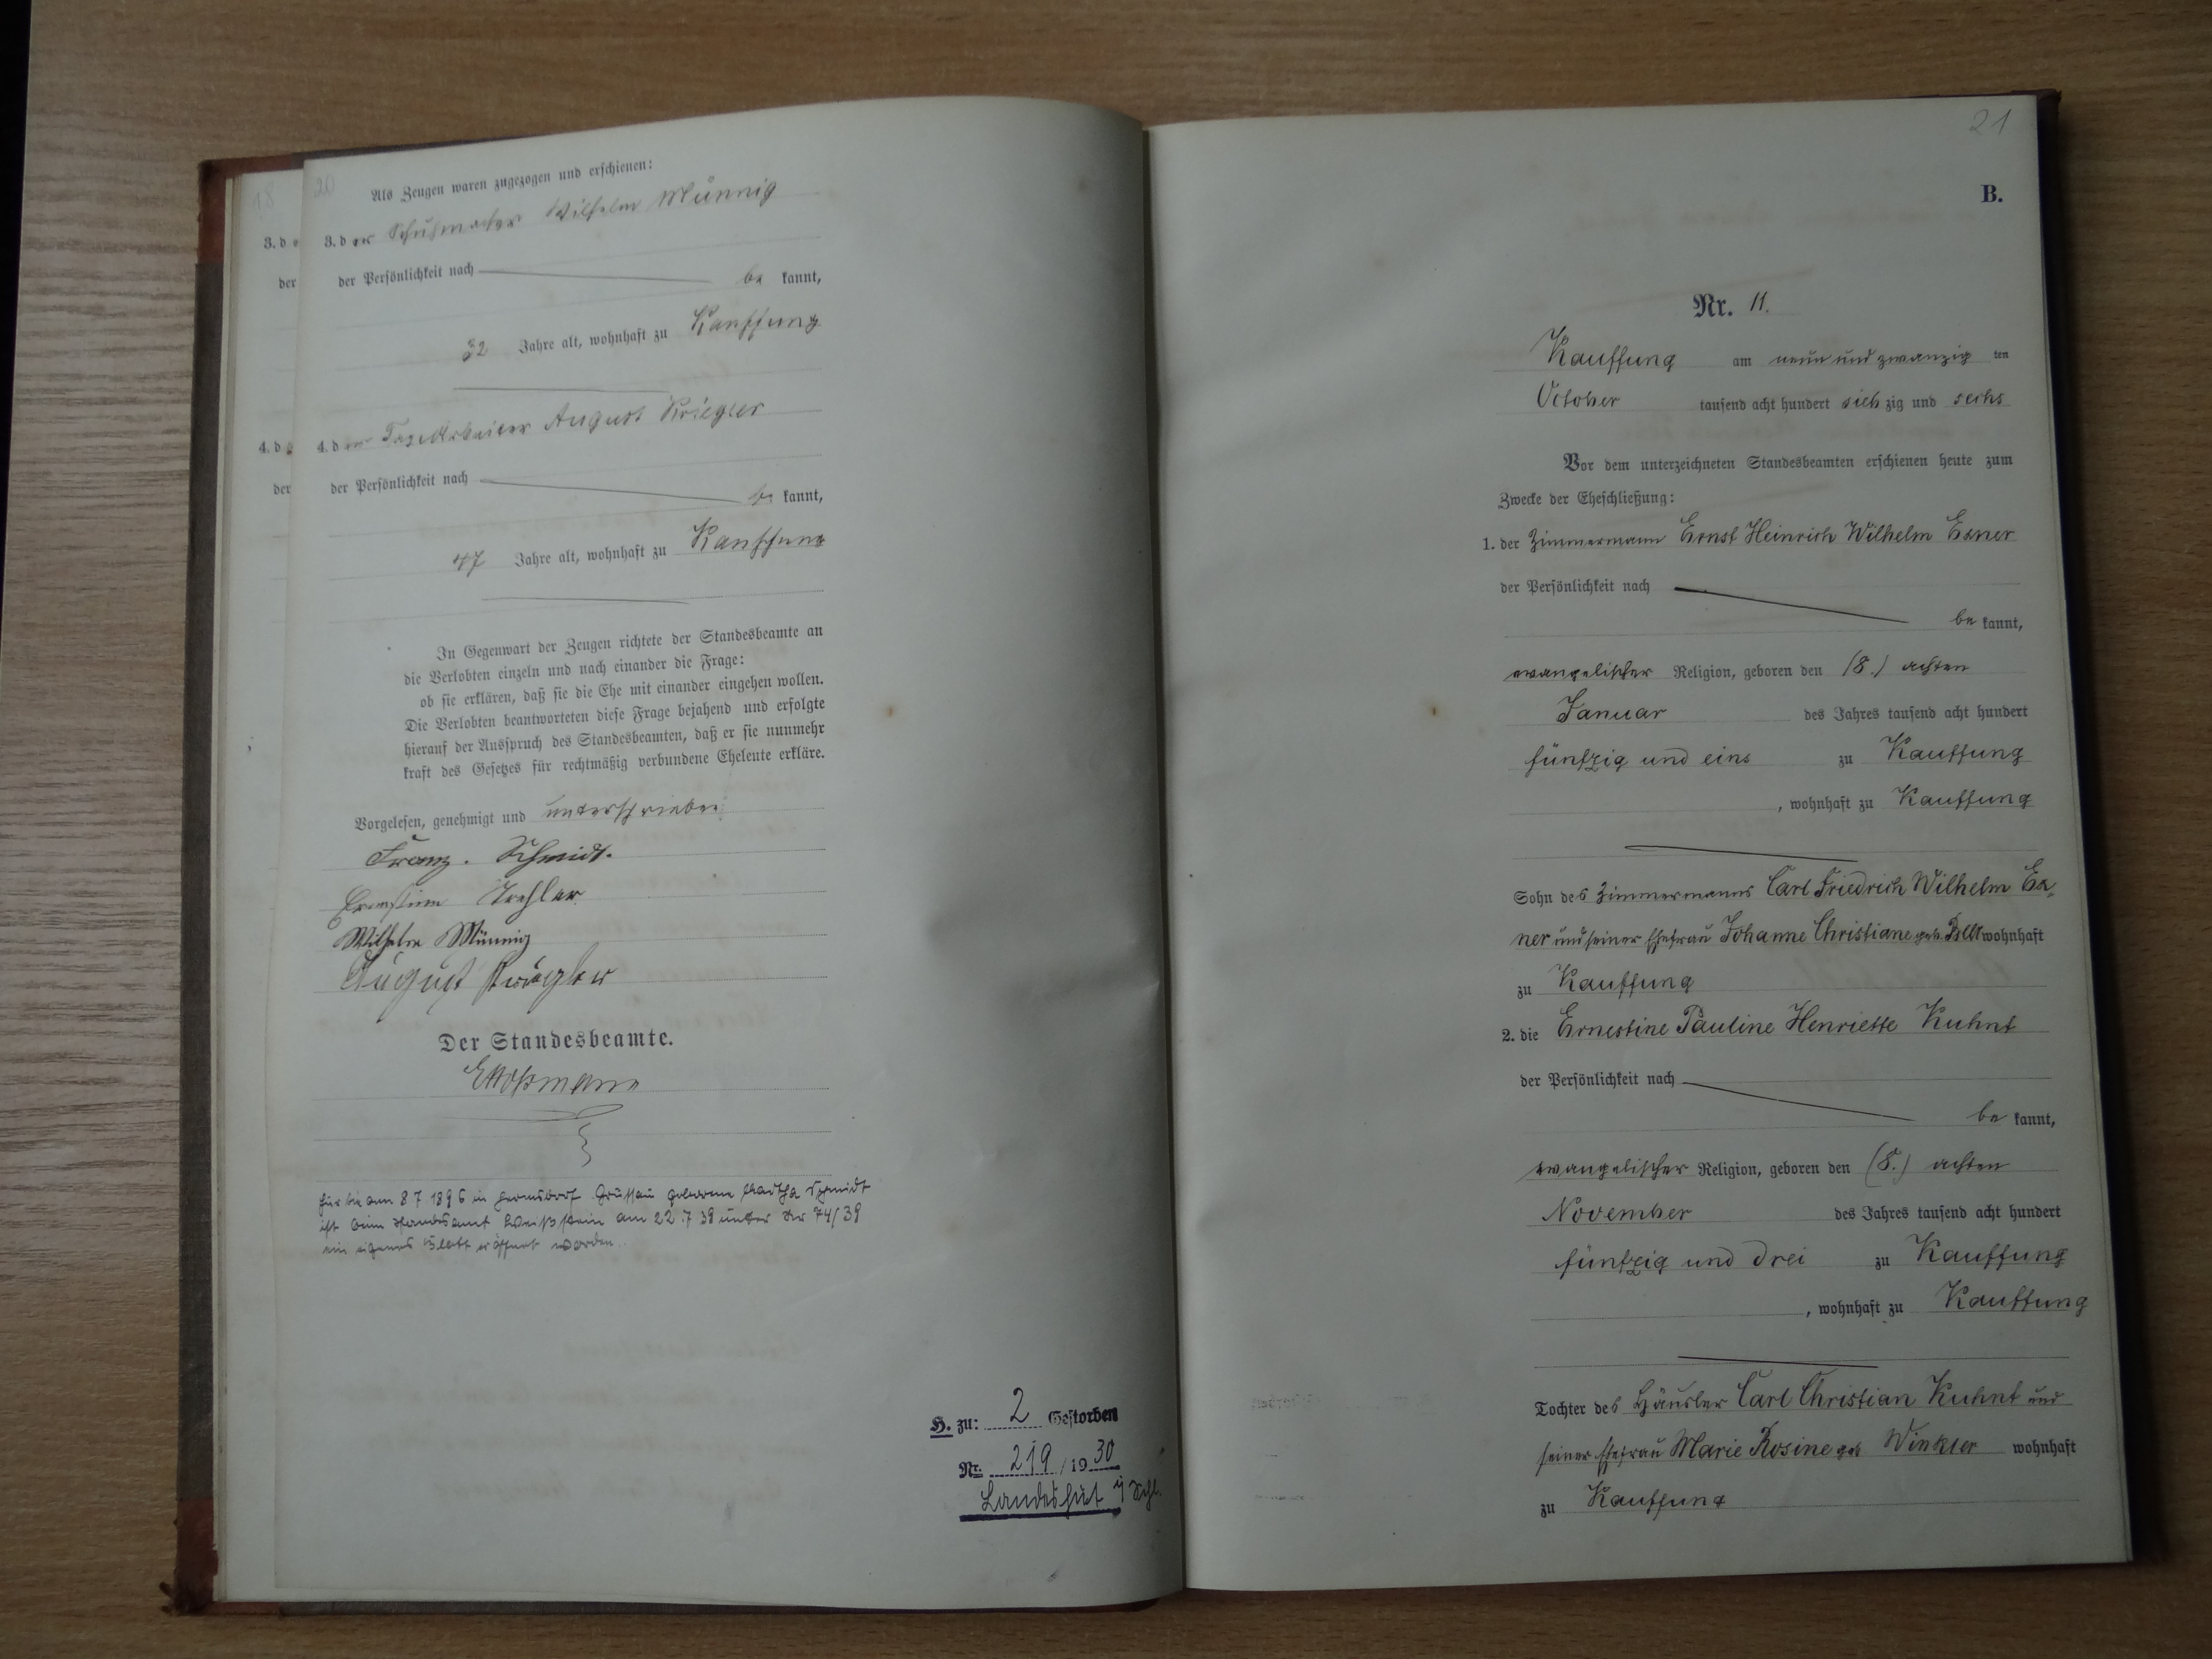 18
3. d
der
4. d
der
20
Als Zeugen waren zugezogen und erschienen:
3. der Schuhmacher Wilhelm Münnig
der Persönlichkeit nach be kannt,
32 Jahre alt, wohnhaft zu Kauffung
4. der Tagearbeiter August Kriegler
der Persönlichkeit nach be kannt,
47 Jahre alt, wohnhaft zu Kauffung
In Gegenwart der Zeugen richtete der Standesbeamte an
die Verlobten einzeln und nach einander die Frage:
ob sie erklären, daß sie die Ehe mit einander eingehen wollen.
Die Verlobten beantworteten diese Frage bejahend und erfolgte
hierauf der Ausspruch des Standesbeamten, daß er sie nunmehr
kraft des Gesetzes für rechtmäßig verbundene Eheleute erkläre.
Vorgelesen, genehmigt und unterschrieben:
Franz. Schmidt.
Wilhelm Münnig
August
Der Standesbeamte.
für die am 8 7 1896 in Hermsdorf Grüssau geborene Martha Schmidt
ist beim Standesamt Weißstein am 22.7 39 unter Nr 74/39
ein eigenes Blatt eröffnet worden.
H. zu: 2 Gestorben
Nr. 219 / 19 30
Landeshut i/ Schl.
21
B.
Nr. 11.
Kauffung am neun und zwanzig ten
October tausend acht hundert sieb zig und sechs
Vor dem unterzeichneten Standesbeamten erschienen heute zum
Zwecke der Eheschließung:
1. der Zimmermann Ernst Heinrich Wilhelm Exner
der Persönlichkeit nach
be kannt,
evangelischer Religion, geboren den (8.) achten
Januar des Jahres tausend acht hundert
fünfzig und eins zu Kauffung
, wohnhaft zu Kauffung
Sohn des Zimmermanns Carl Friedrich Wilhelm Ex-
ner und seiner Ehefrau Johanne Christiane geb. wohnhaft
zu Kauffung
2. die Ernestine Pauline Henriette Kuhnt
der Persönlichkeit nach
be kannt,
evangelischer Religion, geboren den (8.) achten
November des Jahres tausend acht hundert
fünfzig und drei zu Kauffung
, wohnhaft zu Kauffung
Tochter des Häusler Carl Christian Kuhnt und
seiner Ehefrau Marie Rosine geb Winkler wohnhaft
zu Kauffung